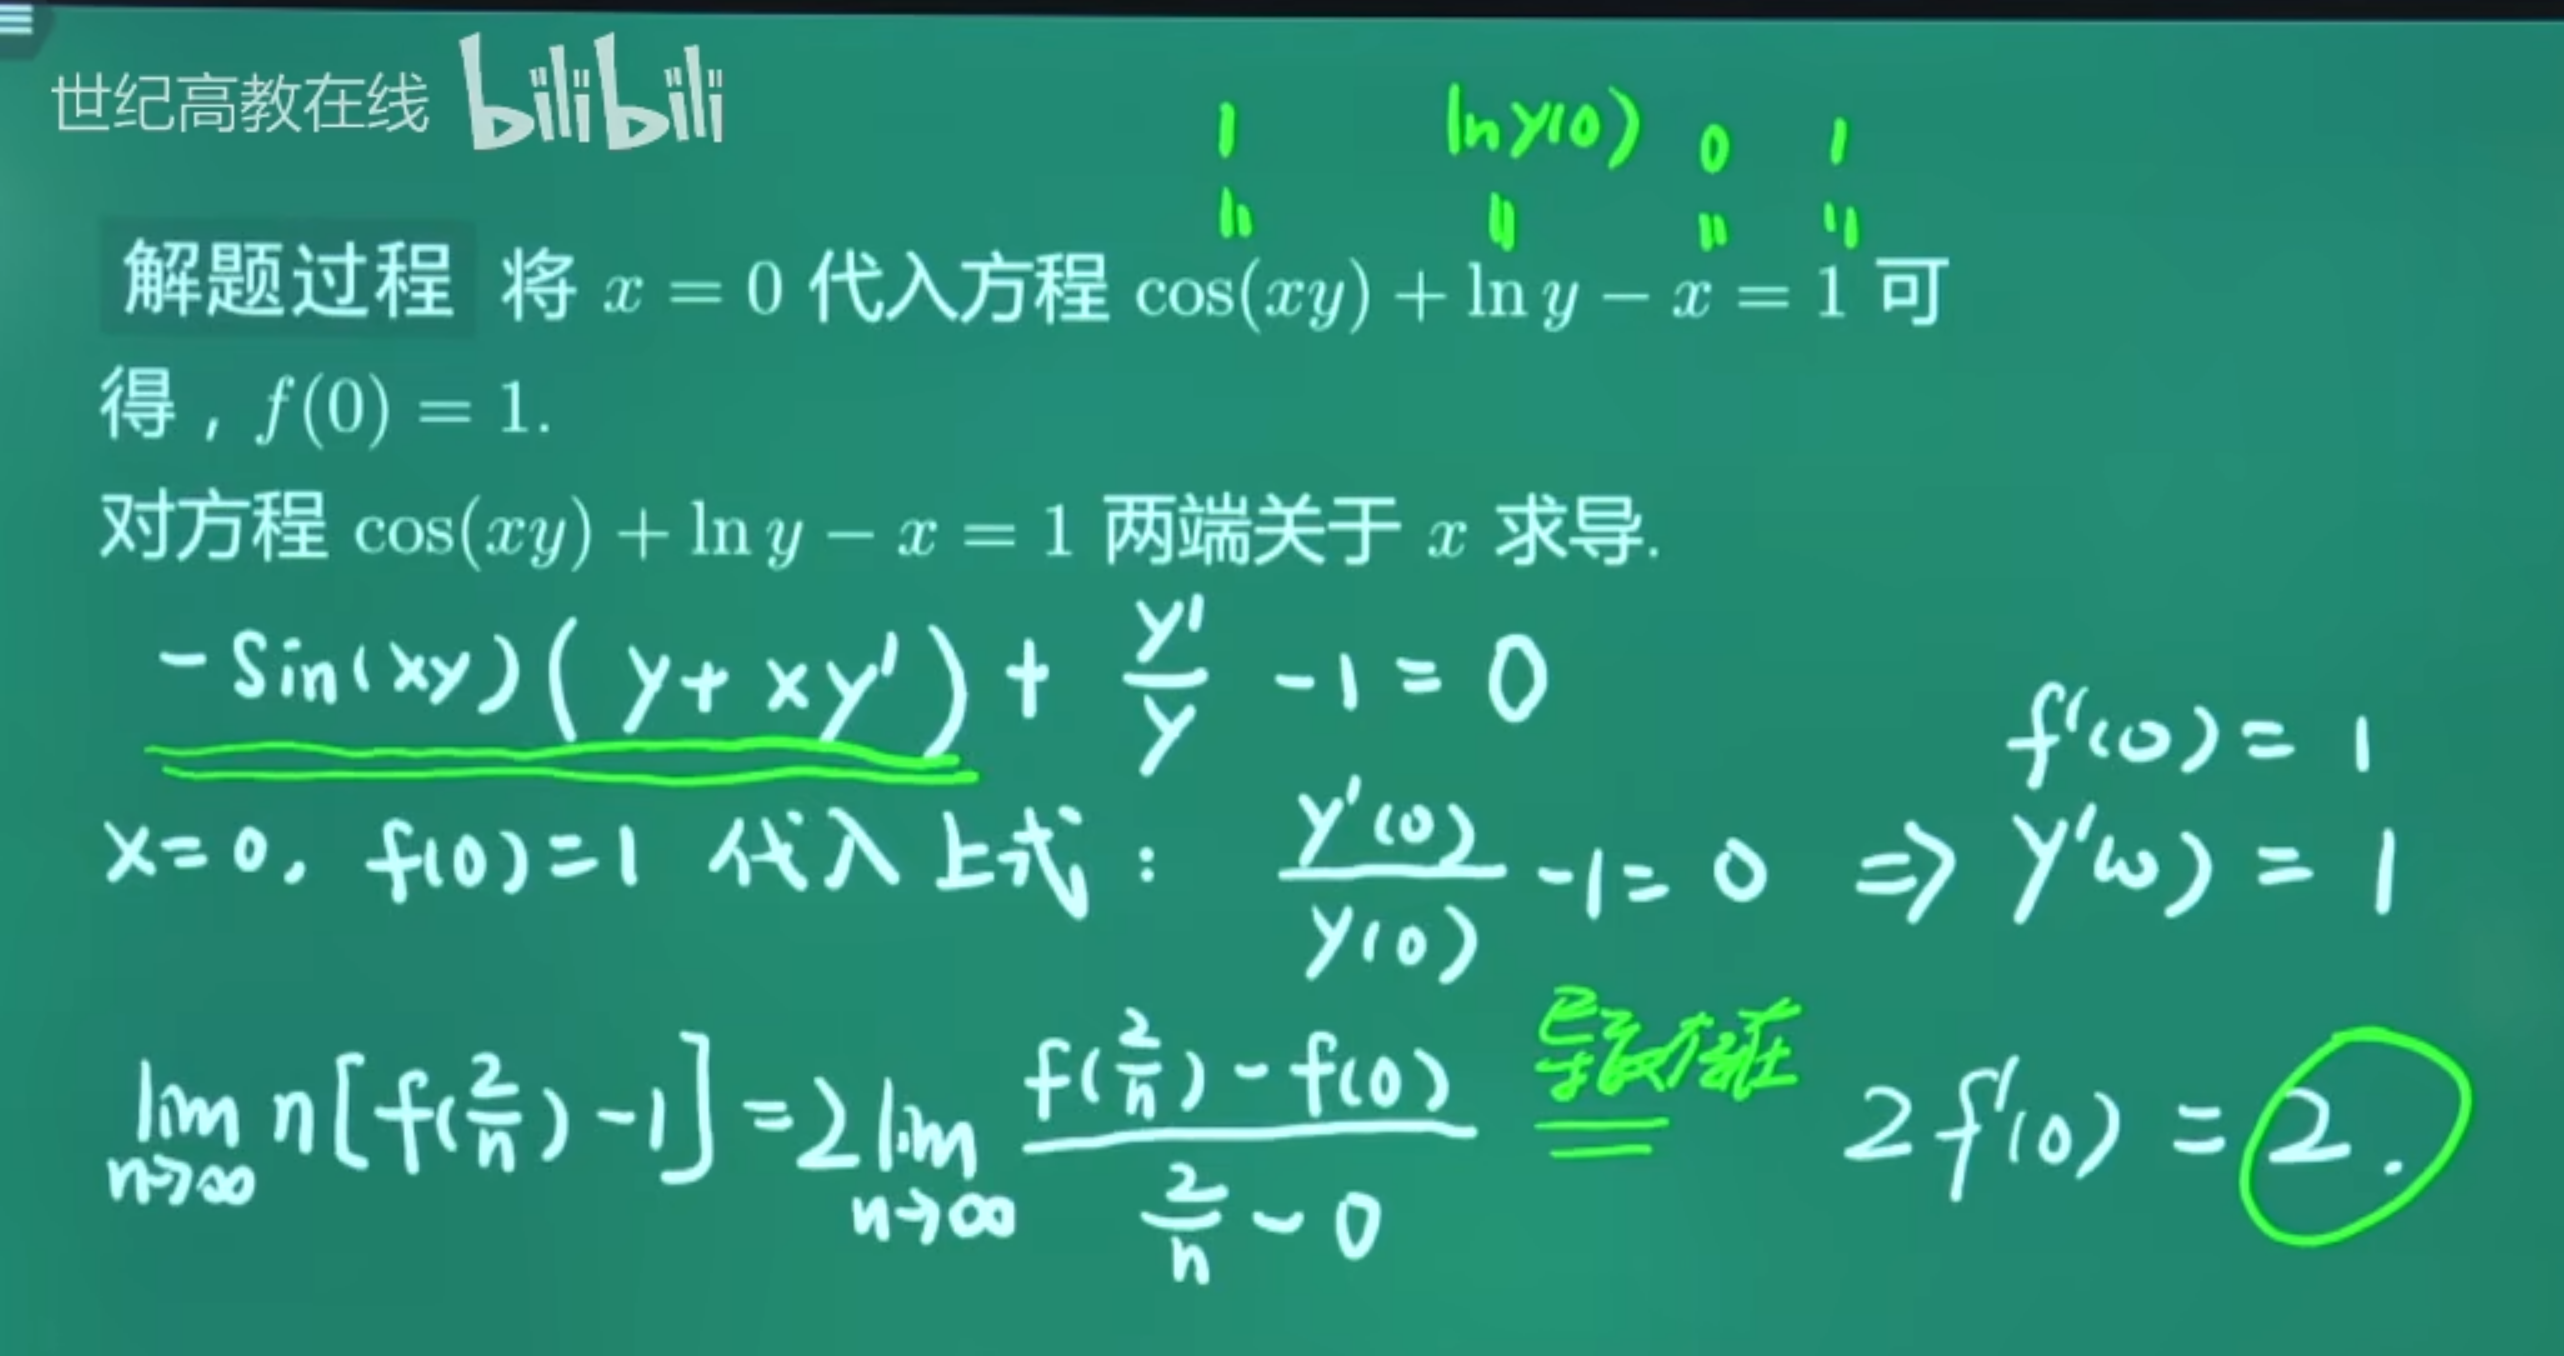 世纪高教在线 bilibili
1 ln y(0) 0 1
解题过程 将 x = 0 代入方程 cos(xy) + ln y − x = 1 可
得，f(0) = 1.
对方程 cos(xy) + ln y − x = 1 两端关于 x 求导.
−sin(xy)(y + xy′) + y′/y − 1 = 0
f′(0) = 1
x = 0, f(0) = 1 代入上式： y′(0)/y(0) − 1 = 0 ⇒ y′(0) = 1
lim n→∞ n[f(2/n) − 1] = 2 lim n→∞ (f(2/n) − f(0))/(2/n − 0) = 2f′(0) = 2.